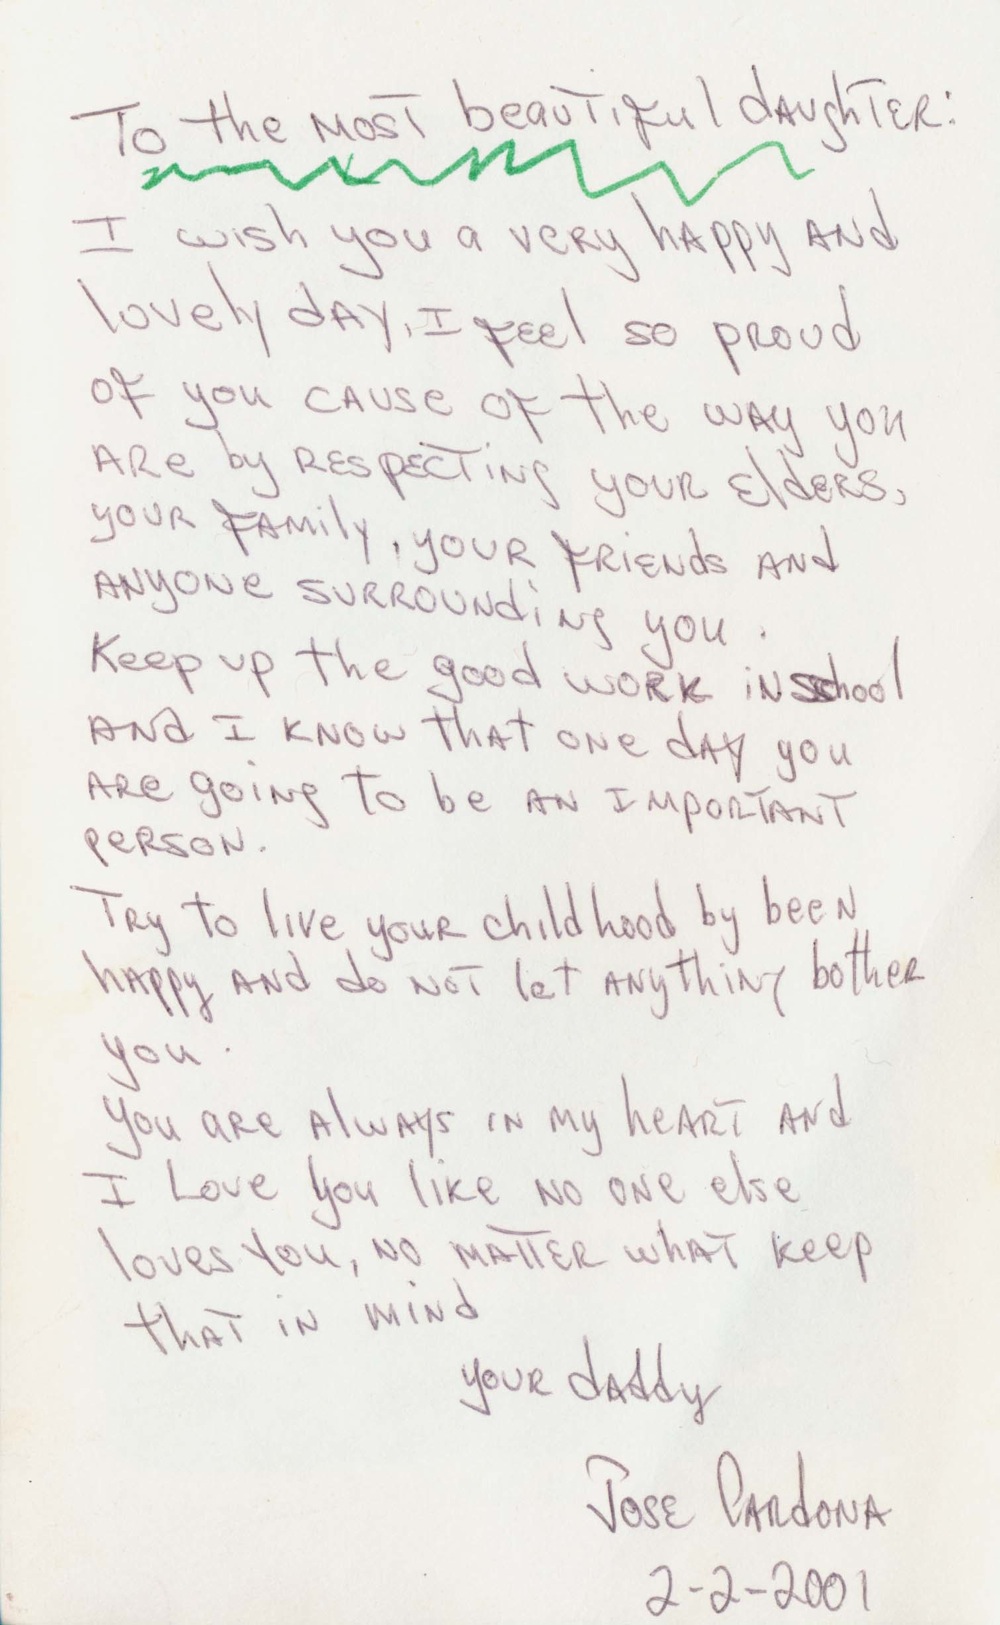 To the most beautiful daughter:
I wish you a very happy and
lovely day, I feel so proud
of you cause of the way you
are by respecting your elders,
your family, your friends and
anyone surrounding you.
Keep up the good work in school
and I know that one day you
are going to be an important
person.
Try to live your childhood by been
happy and do not let anything bother
you.
You are always in my heart and
I Love you like no one else
loves you, no matter what keep
that in mind
your daddy
Jose Cardona
2-2-2001